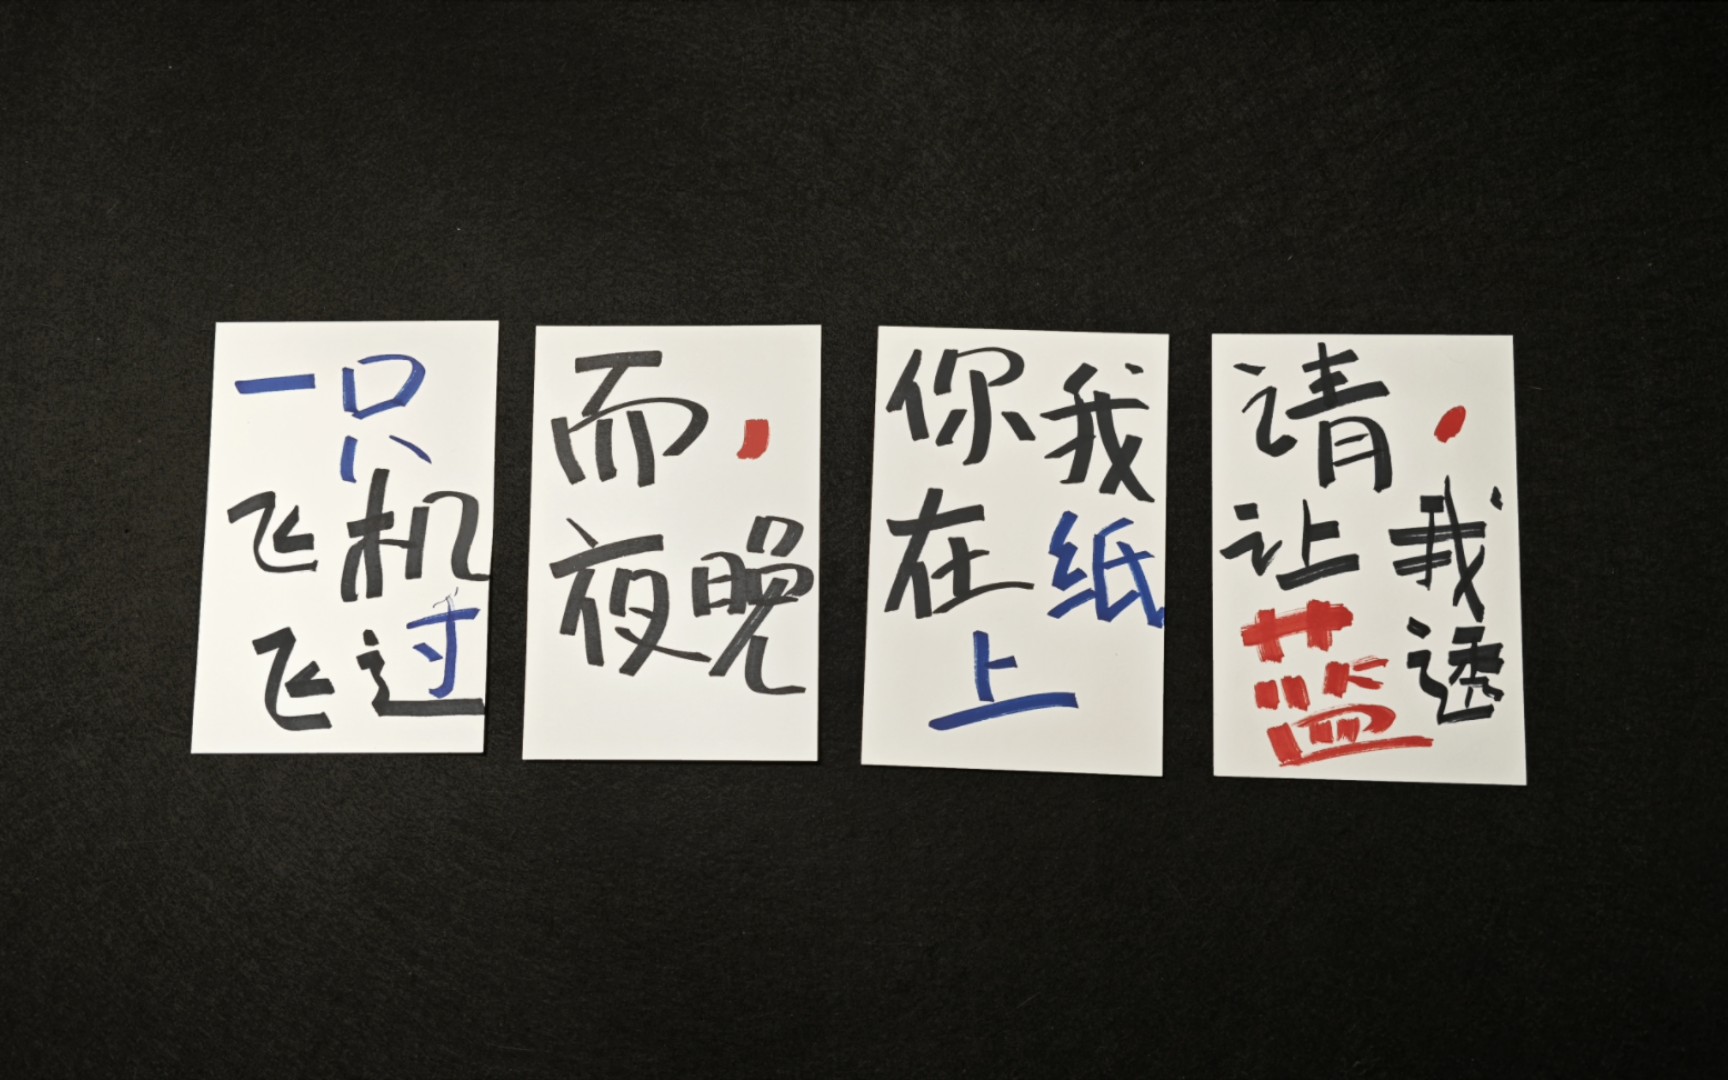 一只
飞机
飞过
而
夜晚
你我
在纸
上
请
让我
蓝透